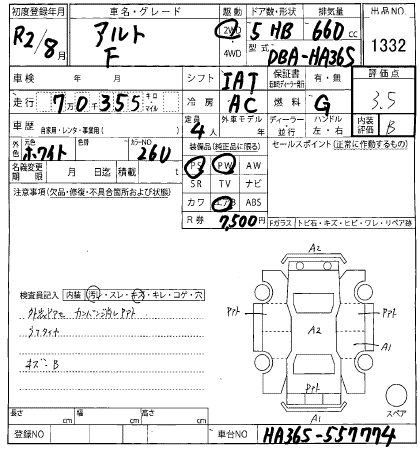 初度登録年月 車名・グレード 駆動 ドア数・形状 排気量 出品NO.
R2/8月 アルト F 2WD 4WD 5 HB 660cc 1332
型式 DBA-HA36S
車検 年 月 シフト IAT 保証書 有・無 評価点
走行 7万0千355 キロ・マイル 冷房 AC 燃料 G 3.5
車歴 自家用・レンタ・事業用( ) 定員 4人 外車モデル 年 ディーラー・並行 ハンドル 左・右 内装評価 B
外色 ホワイト 色替 カラーNO 26U 装備品(純正品に限る) セールスポイント(正常に作動するもの)
名義変更期限 月 日迄 積載 t PS PW AW
注意事項(欠品・修復・不具合箇所および状態) SR TV ナビ
カワ エアB ABS
R券 7,500円 Fガラス トビ石・キズ・ヒビ・ワレ・リペア跡
A2
検査員記入 内装 汚レ・スレ・キズ・キレ・コゲ・穴
アト アト
A2
A1
キズ・B
アト
A1
スペア
長さ cm 幅 cm 高さ cm
登録NO 車台NO HA36S-557774